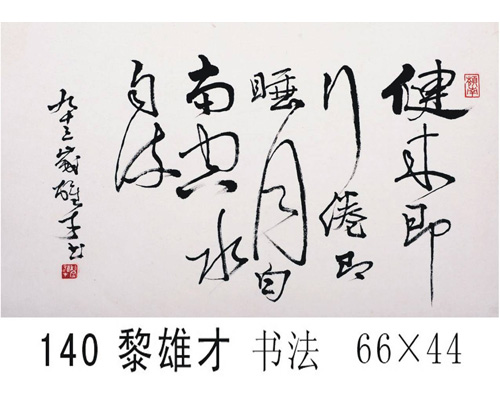 健来即
行倦即
睡月白
南水
自
九十三歲雄才书
140 黎雄才 书法 66×44